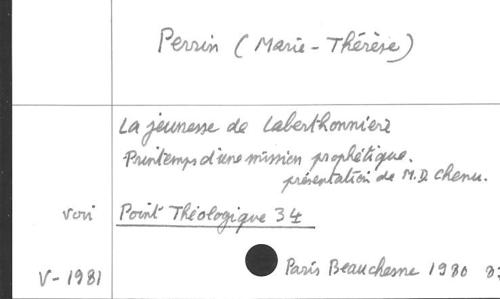 Perrin (Marie-Thérèse)
La jeunesse de Laberthonnière
Printemps d'une mission prophétique.
présentation de M.D. Chenu.
voir Point Théologique 34
V-1981 Paris Beauchesne 1980